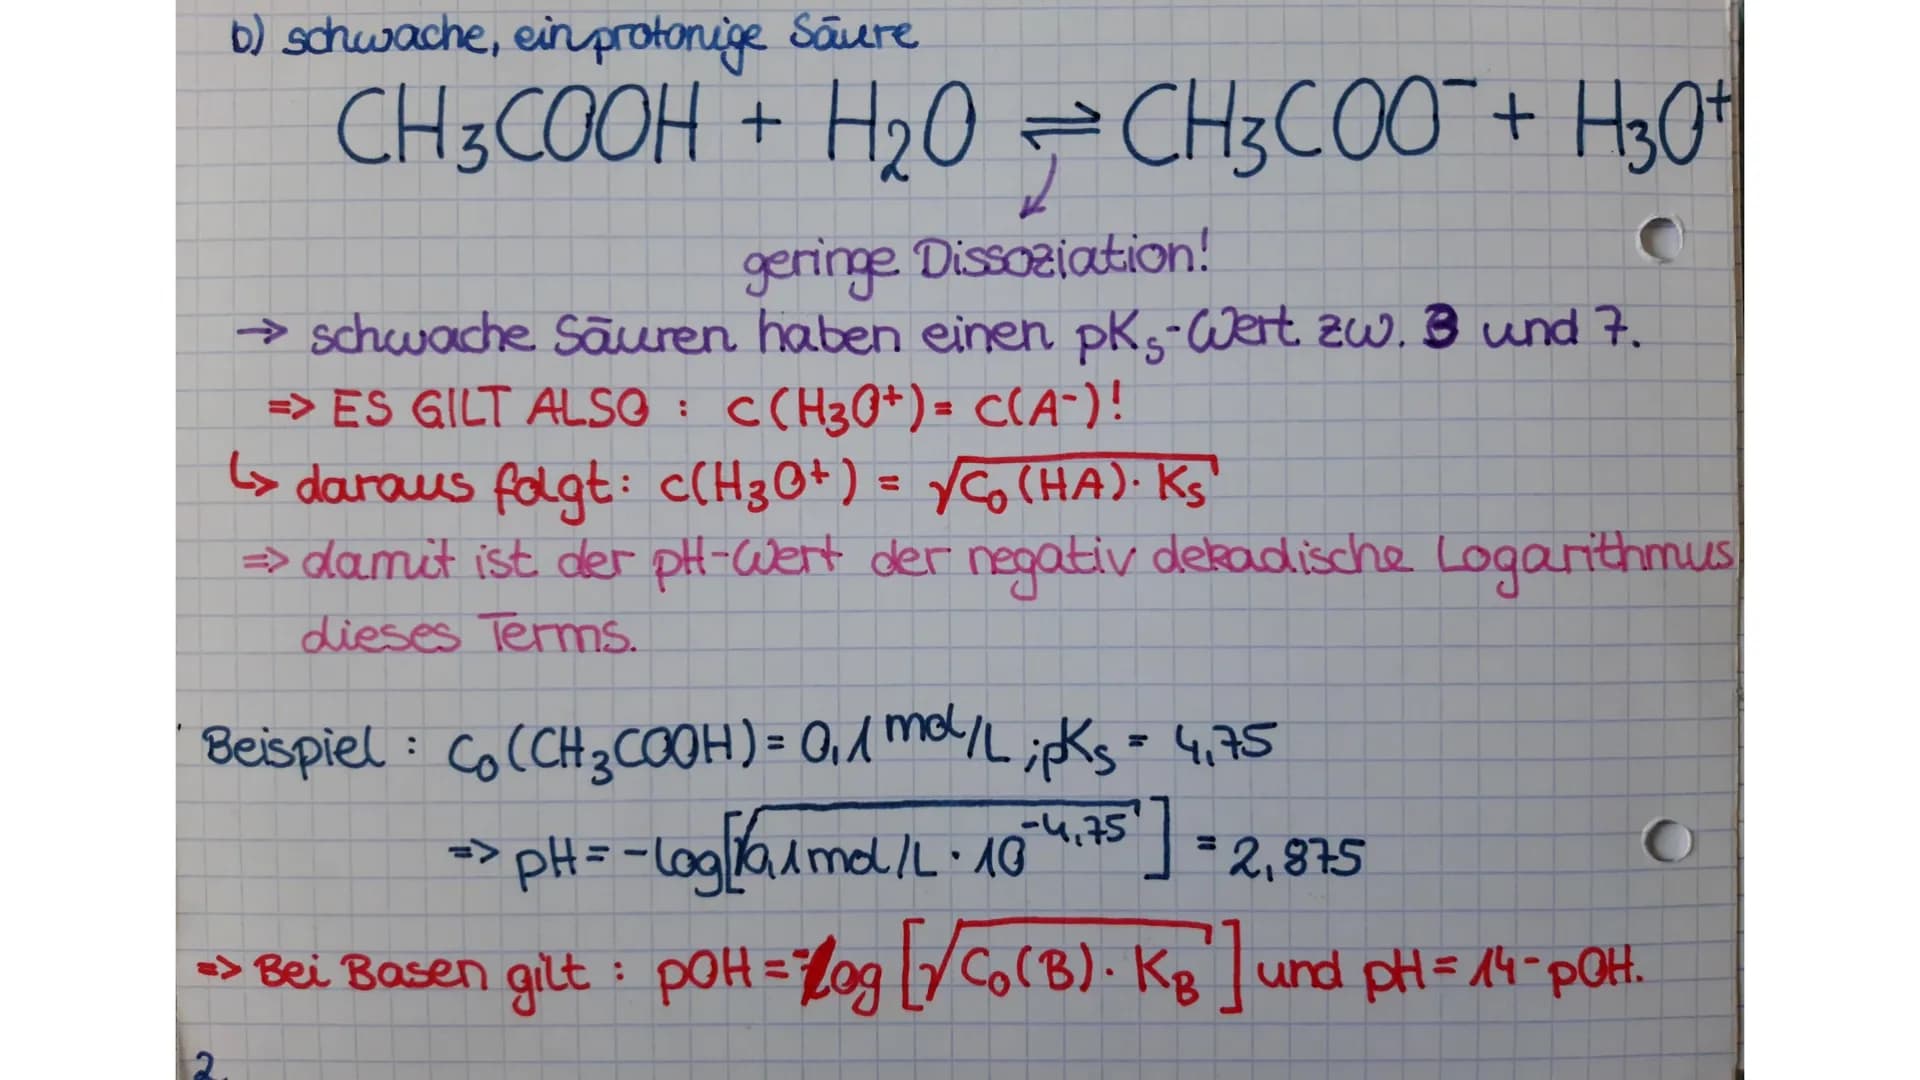 b) schwache, einprotonige Säure
CH₃COOH + H₂O ⇌ CH₃COO⁻ + H₃O⁺
geringe Dissoziation!
→ schwache Säuren haben einen pKₛ-Wert zw. 3 und 7.
=> ES GILT ALSO : c(H₃O⁺) = c(A⁻)!
↳ daraus folgt: c(H₃O⁺) = √(C₀(HA) · Kₛ)
=> damit ist der pH-Wert der negativ dekadische Logarithmus
dieses Terms.
Beispiel : C₀(CH₃COOH) = 0,1 mol/L ; pKₛ = 4,75
=> pH = -log[√(0,1 mol/L · 10⁻⁴,⁷⁵)] = 2,875
=> Bei Basen gilt : pOH = -log [√(C₀(B) · K_B)] und pH = 14 - pOH.
2.